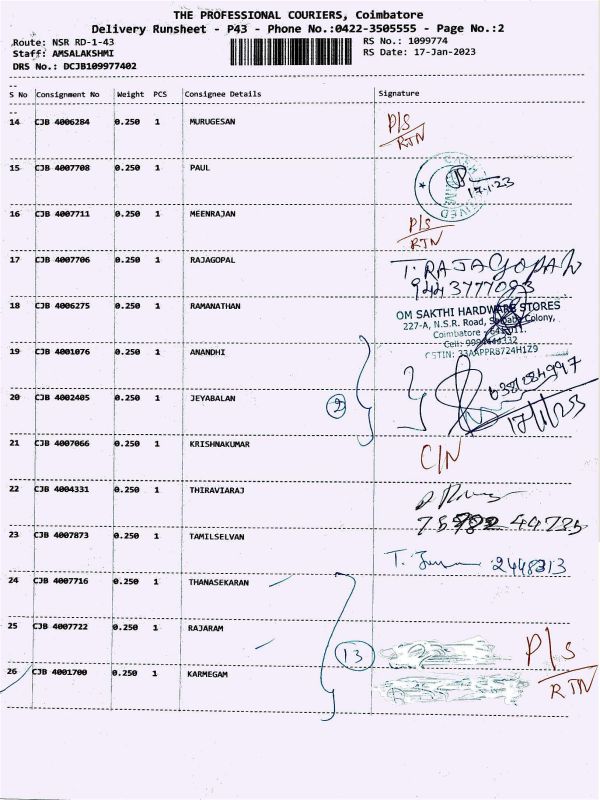 THE PROFESSIONAL COURIERS, Coimbatore
Delivery Runsheet - P43 - Phone No.:0422-3505555 - Page No.:2
Route: NSR RD-1-43 RS No.: 1099774
Staff: AMSALAKSHMI RS Date: 17-Jan-2023
DRS No.: DCJB109977402
S No Consignment No Weight PCS Consignee Details Signature
14 CJB 4006284 0.250 1 MURUGESAN P/S
RTN
15 CJB 4007708 0.250 1 PAUL
17-1-23
16 CJB 4007711 0.250 1 MEENRAJAN P/S
RTN
17 CJB 4007706 0.250 1 RAJAGOPAL T. RAJAGOPAL
9443777093
18 CJB 4006275 0.250 1 RAMANATHAN OM SAKTHI HARDWARE STORES
227-A, N.S.R. Road, Saibaba Colony,
Coimbatore - 641011.
19 CJB 4001076 0.250 1 ANANDHI
20 CJB 4002405 0.250 1 JEYABALAN 2
17/1/23
21 CJB 4007066 0.250 1 KRISHNAKUMAR C/N
22 CJB 4004331 0.250 1 THIRAVIARAJ
23 CJB 4007873 0.250 1 TAMILSELVAN 2448313
24 CJB 4007716 0.250 1 THANASEKARAN
25 CJB 4007722 0.250 1 RAJARAM 13 P/S
RTN
26 CJB 4001700 0.250 1 KARMEGAM